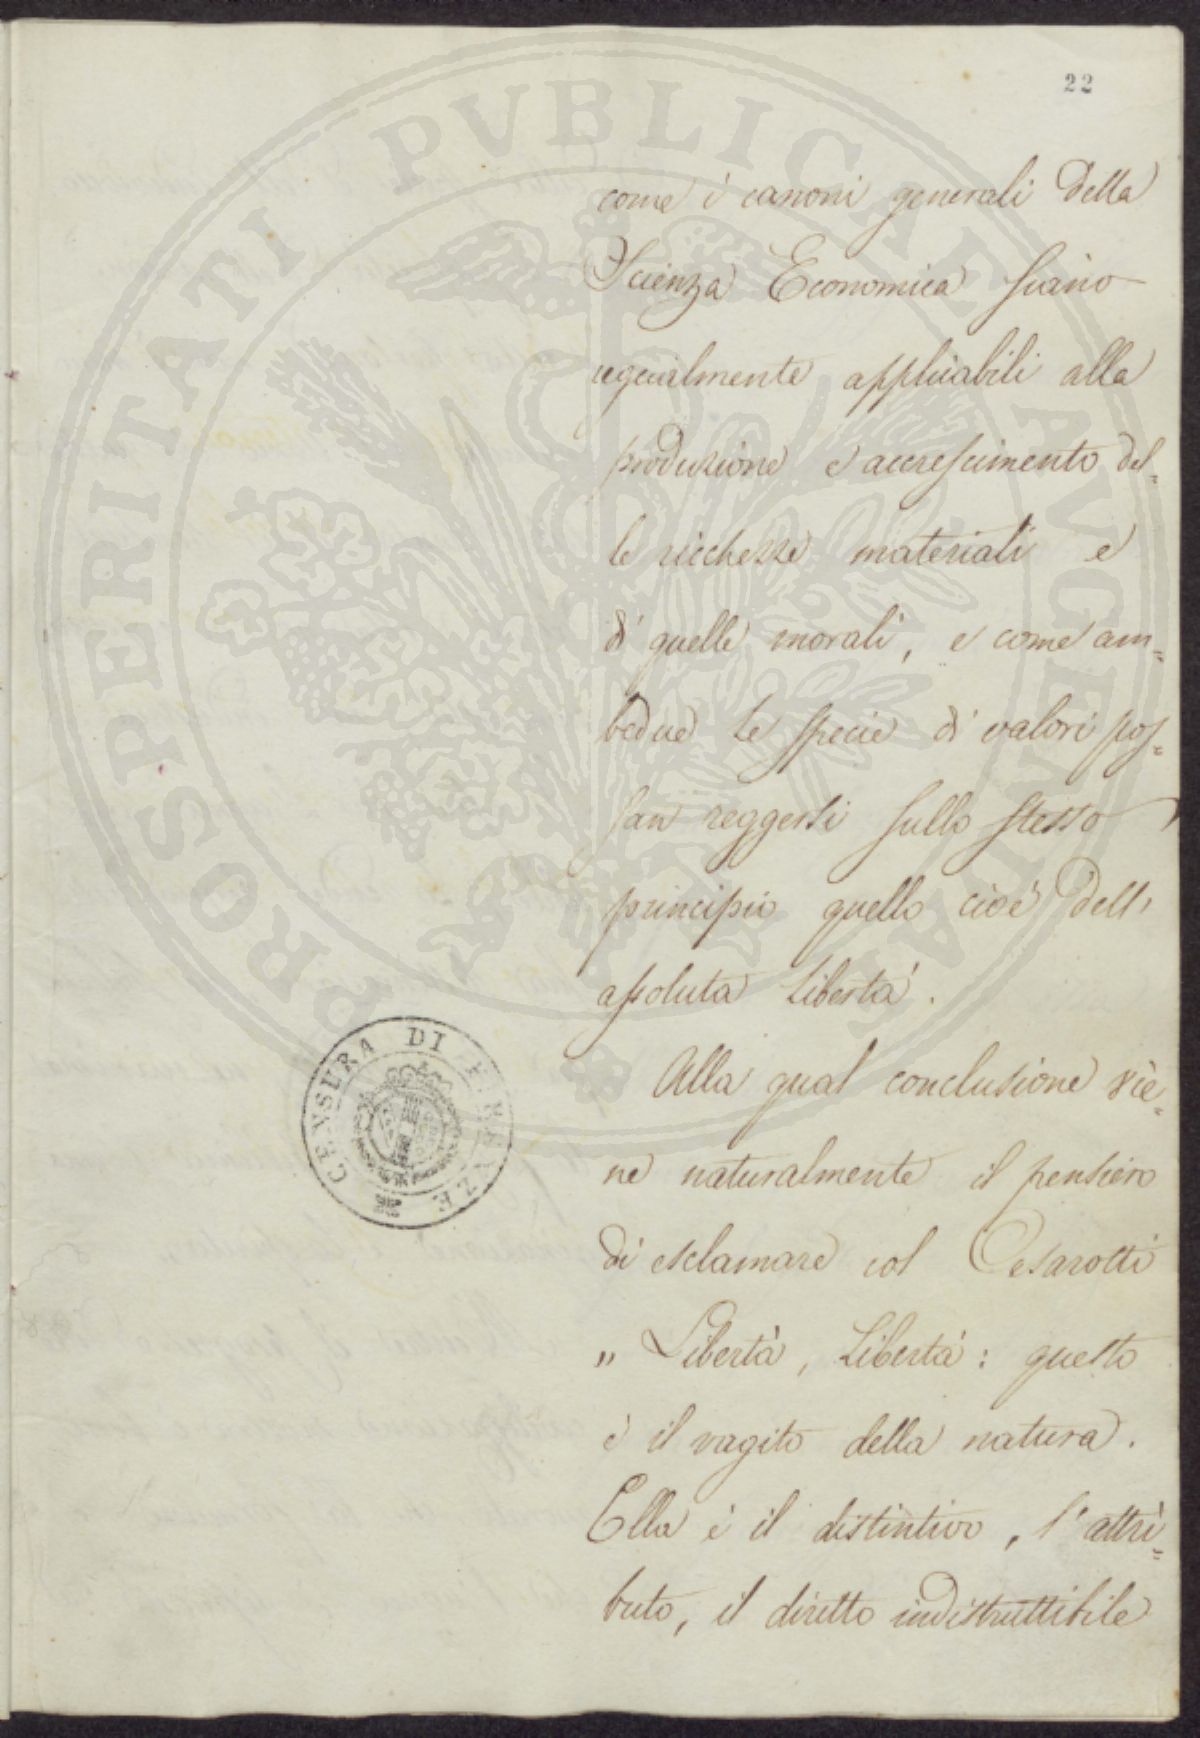 22
come i canoni generali della
Scienza Economica siano
ugualmente applicabili alla
produzione e accrescimento del=
le ricchezze materiali e
di quelle morali, e come am=
bedue le specie di valori pos=
san reggersi sullo stesso
principio quello cioè dell'
assoluta Libertà.
Alla qual conclusione vie=
ne naturalmente il pensiero
di esclamare col Cesarotti
„ Libertà, Libertà: questo
è il vagito della natura.
Ella è il distintivo, l'attri=
buto, il diritto indistruttibile
CENSURA DI FIRENZE
PROSPERITATI PVBLICAE AVGENDAE